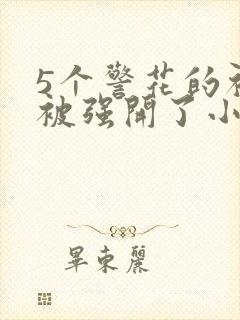 5个警花的
被强開了小
畢東麗